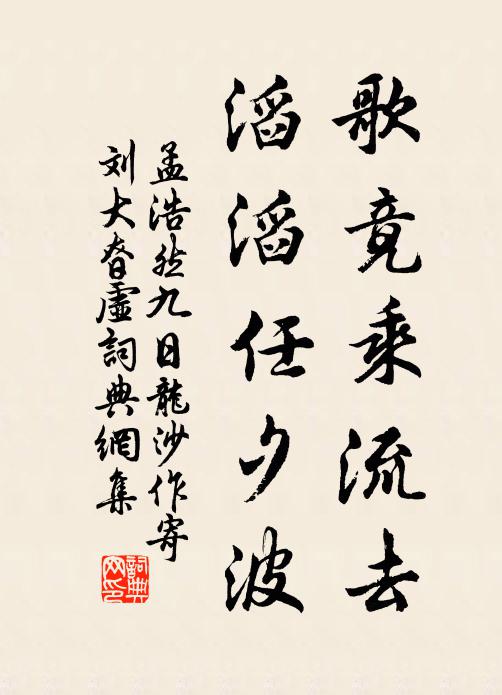 歌竟乘流去
滔滔任夕波
孟浩然九日龍沙作寄
刘大昚虛詞典網集
詞典网印